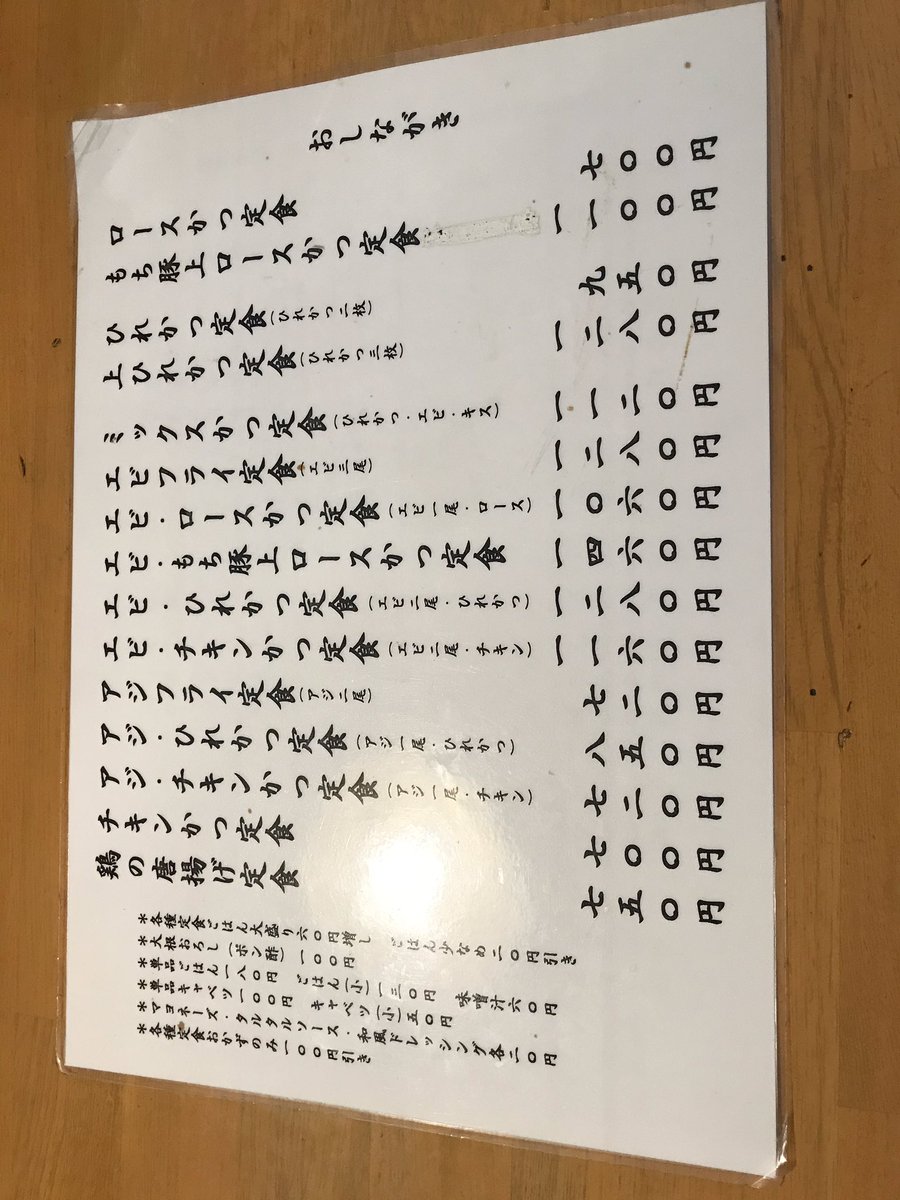 おしながき
ロースかつ定食 七〇〇円
もち豚上ロースかつ定食 一一〇〇円
ひれかつ定食(ひれかつ二枚) 九五〇円
上ひれかつ定食(ひれかつ三枚) 一二八〇円
ミックスかつ定食(ひれかつ・エビ・キス) 一一二〇円
エビフライ定食(エビ三尾) 一二八〇円
エビ・ロースかつ定食(エビ一尾・ロース) 一〇六〇円
エビ・もち豚上ロースかつ定食 一四六〇円
エビ・ひれかつ定食(エビ二尾・ひれかつ) 一二八〇円
エビ・チキンかつ定食(エビ二尾・チキン) 一一六〇円
アジフライ定食(アジ二尾) 七二〇円
アジ・ひれかつ定食(アジ一尾・ひれかつ) 八五〇円
アジ・チキンかつ定食(アジ一尾・チキン) 七二〇円
チキンかつ定食 七〇〇円
鶏の唐揚げ定食 七五〇円
*各種定食ごはん大盛り六〇円増し ごはん少なめ二〇円引き
*大根おろし(ポン酢)一〇〇円
*単品ごはん一八〇円 ごはん(小)一三〇円 味噌汁六〇円
*単品キャベツ一〇〇円 キャベツ(小)五〇円
*マヨネーズ・タルタルソース・和風ドレッシング各二〇円
*各種定食おかずのみ一〇〇円引き